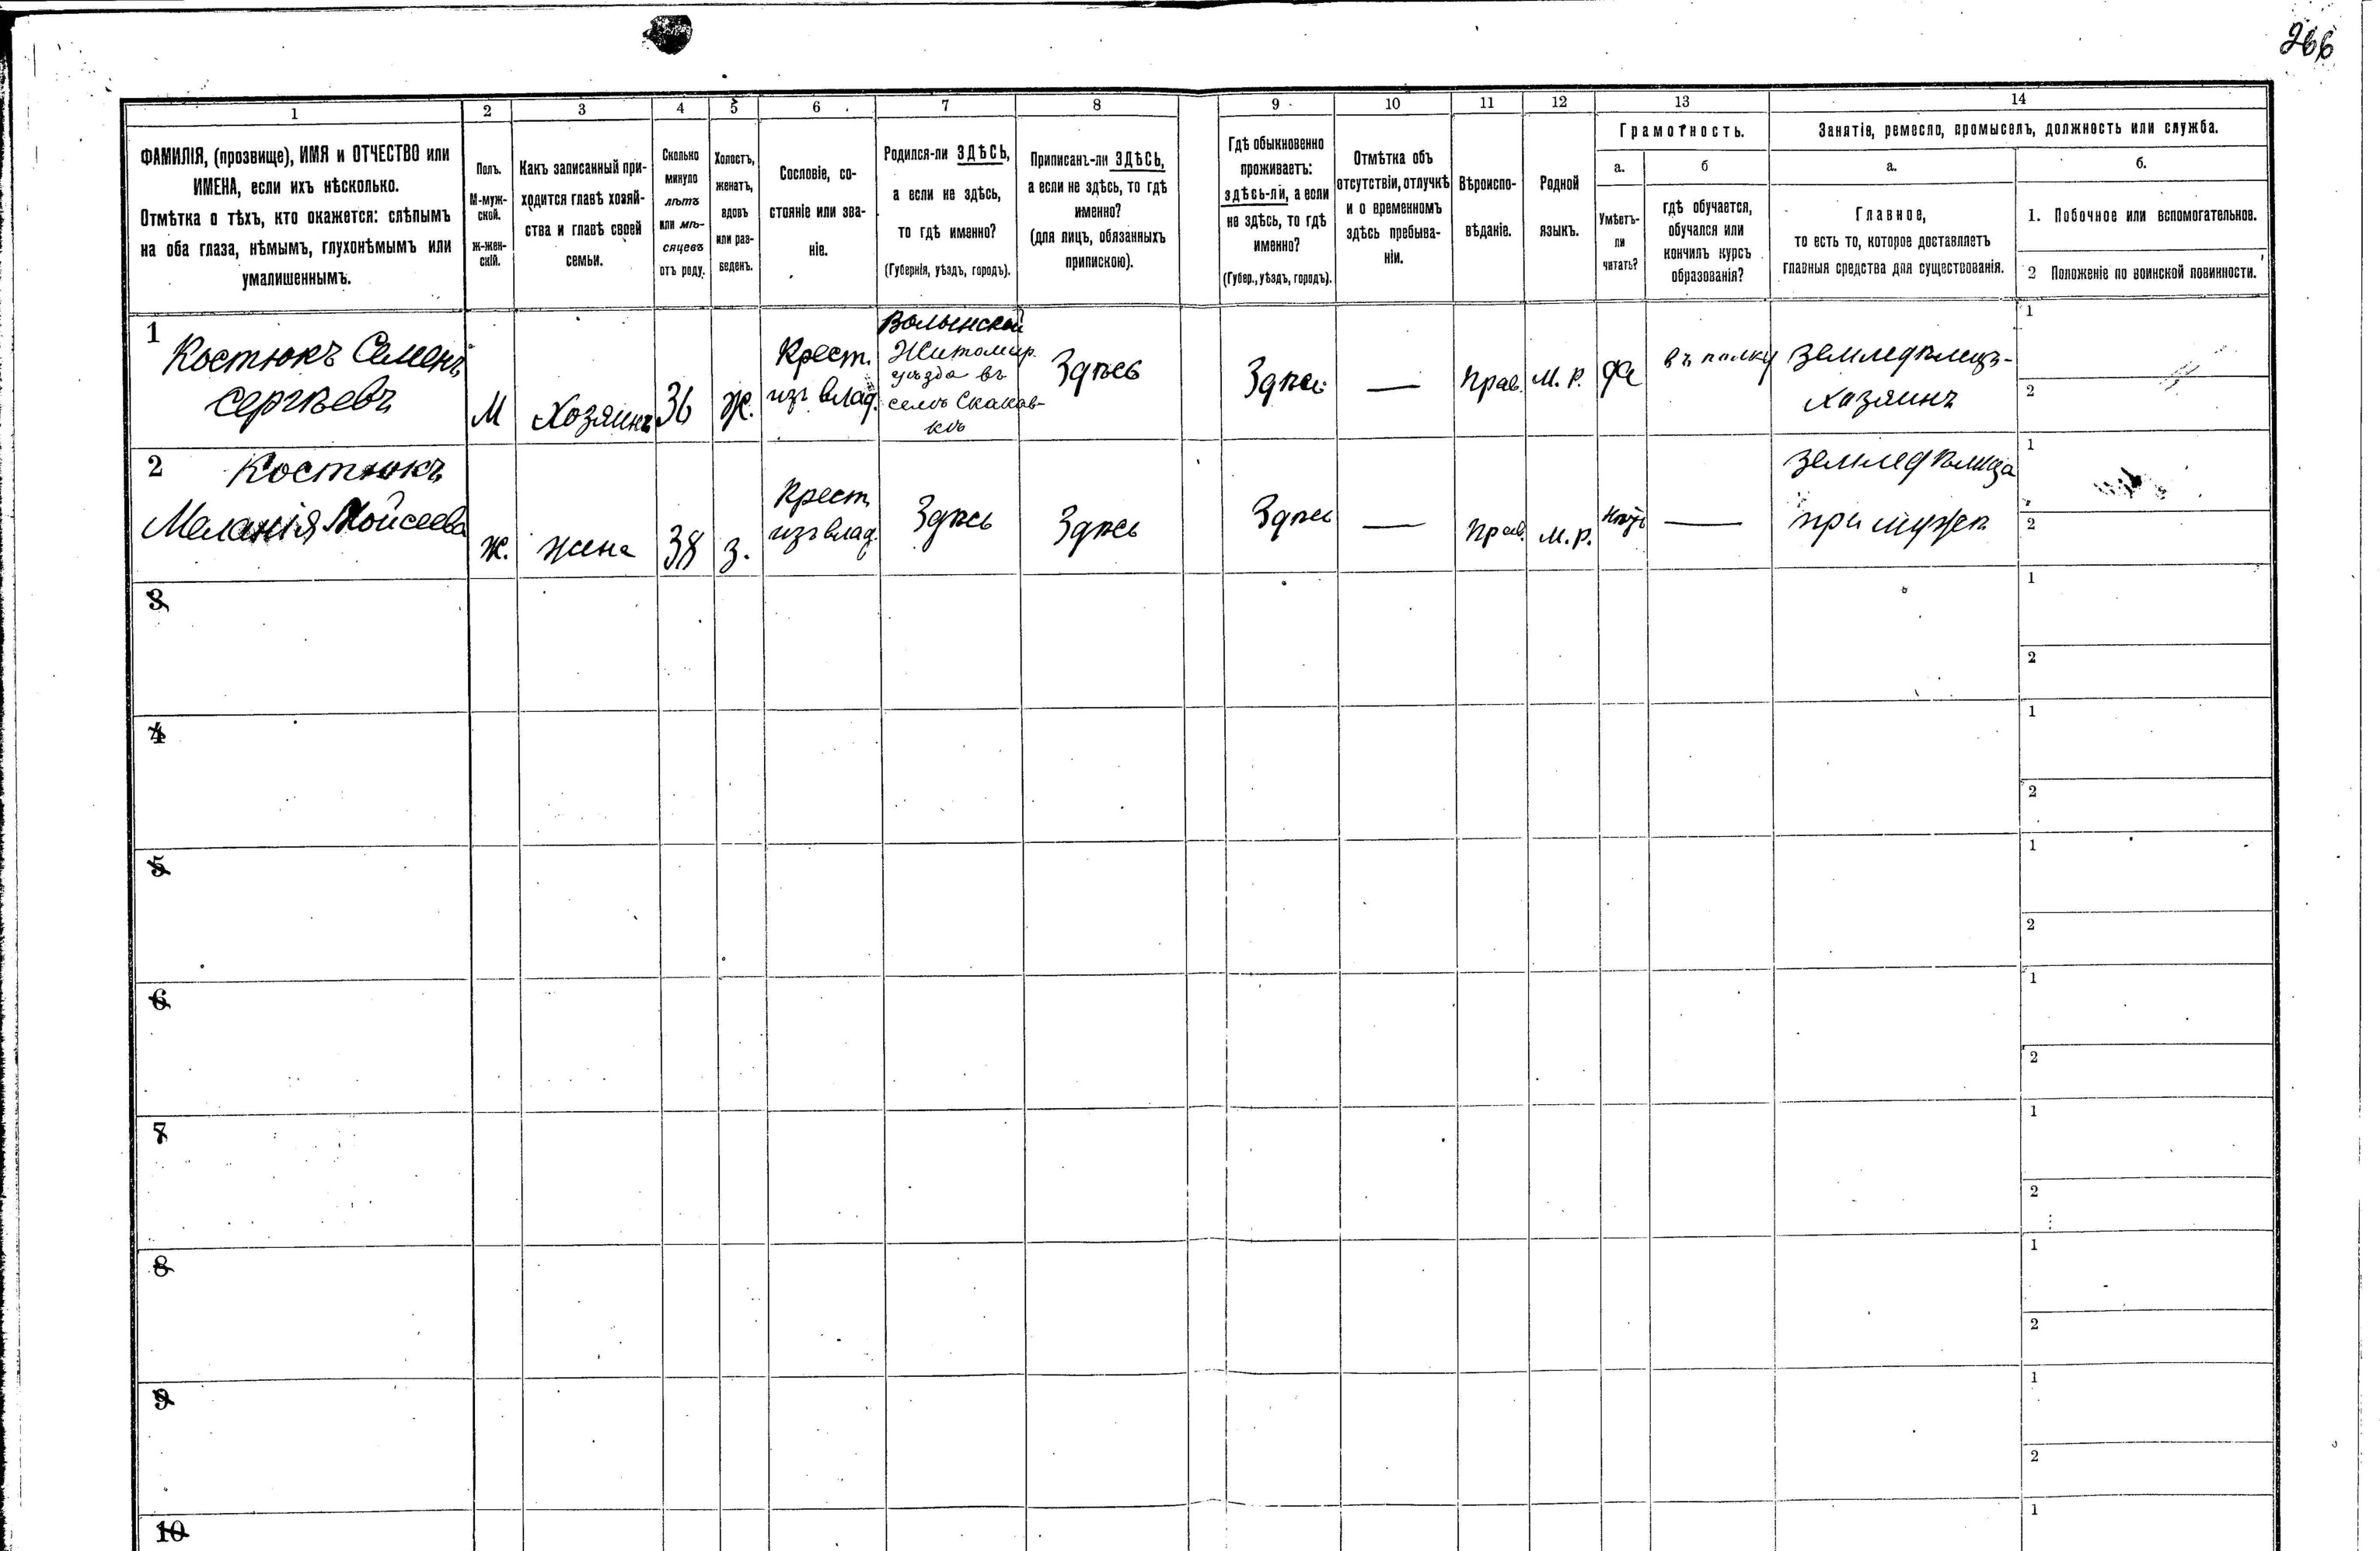 266
1
2
3
4
5
6
7
8
9
10
11
12
13
14
ФАМИЛІЯ, (прозвище), ИМЯ и ОТЧЕСТВО или
ИМЕНА, если ихъ нѣсколько.
Отмѣтка о тѣхъ, кто окажется: слѣпымъ
на оба глаза, нѣмымъ, глухонѣмымъ или
умалишеннымъ.
Полъ.
М-муж-
ской.
ж-жен-
скій.
Какъ записанный при-
ходится главѣ хозяй-
ства и главѣ своей
семьи.
Сколько
минуло
лѣтъ
или мѣ-
сяцевъ
отъ роду.
Холостъ,
женатъ,
вдовъ
или раз-
веденъ.
Сословіе, со-
стояніе или зва-
ніе.
Родился-ли ЗДѢСЬ,
а если не здѣсь,
то гдѣ именно?
(Губернія, уѣздъ, городъ).
Приписанъ-ли ЗДѢСЬ,
а если не здѣсь, то гдѣ
именно?
(для лицъ, обязанныхъ
припискою).
Гдѣ обыкновенно
проживаетъ:
здѣсь-ли, а если
не здѣсь, то гдѣ
именно?
(Губер., уѣздъ, городъ).
Отмѣтка объ
отсутствіи, отлучкѣ
и о временномъ
здѣсь пребыва-
ніи.
Вѣроиспо-
вѣданіе.
Родной
языкъ.
Грамотность.
а.
Умѣетъ-
ли
читать?
б
гдѣ обучается,
обучался или
кончилъ курсъ
образованія?
Занятіе, ремесло, промыселъ, должность или служба.
а.
Главное,
то есть то, которое доставляетъ
главныя средства для существованія.
б.
1. Побочное или вспомогательное.
2 Положеніе по воинской повинности.
1
Костюкъ Семенъ
Сергѣевъ
М
Хозяинъ
36
ж.
Крест.
изъ влад.
Волынской
Житомир.
уѣзда въ
селѣ Скаков-
кѣ
Здѣсь
Здѣсь
—
Прав.
М. р.
да
въ полку
земледѣлецъ-
хозяинъ
1
2
2
Костюкъ
Меланія Мойсеева
ж.
жена
38
з.
Крест
изъ влад.
Здѣсь
Здѣсь
Здѣсь
—
Прав.
М. р.
нѣтъ
—
земледѣлица
при мужѣ
1
2
3
1
2
4
1
2
5
1
2
6
1
2
7
1
2
8
1
2
9
1
2
10
1